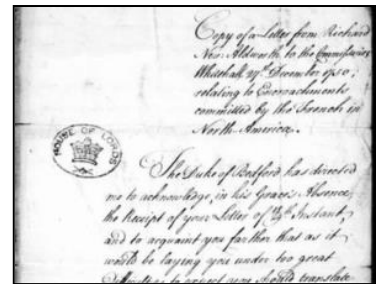 Copy of a Letter from Richard
Nev. Aldworth to the Commissaries
Whitehall 27th December 1750,
relating to Encroachments
committed by the French in
North America.
HOUSE OF LORDS
The Duke of Bedford has directed
me to acknowledge, in his Grace's Absence
the Receipt of your Letter of Instant,
and to acquaint you farther that as it
would be laying you under too great
to expect you should translate